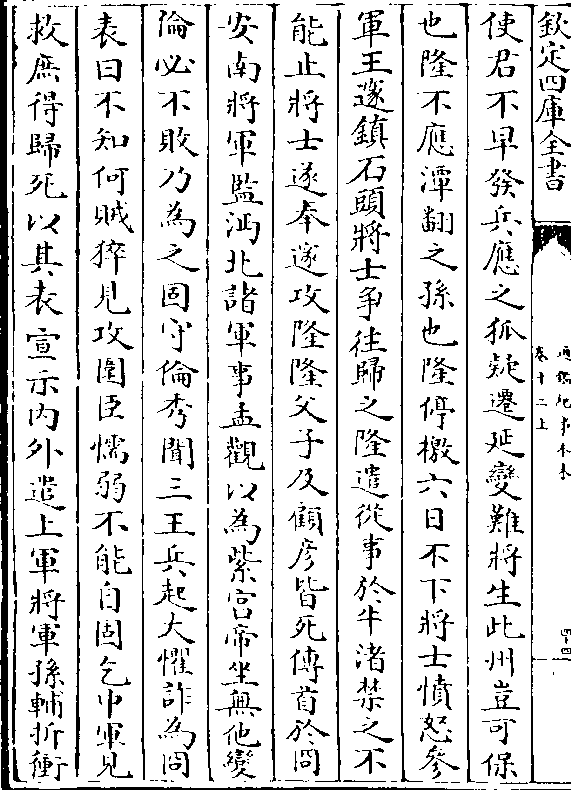 欽定四庫全書
通鑑紀事本末
卷十二上
使君不早發兵應之狐疑遷延變難將生此州豈可保
也隆不應潭翻之孫也隆停檄六日不下將士憤怒參
軍王邃鎮石頭將士爭往歸之隆遣從事於牛渚禁之不
能止將士遂奉邃攻隆隆父子及顧彦皆死傳首於冏
安南將軍監沔北諸軍事孟觀以為紫宫帝坐無他變
倫必不敗乃為之固守倫秀聞三王兵起大懼詐為冏
表曰不知何賊猝見攻圍臣懦弱不能自固乞中軍見
救庶得歸死以其表宣示内外遣上軍將軍孫輔折衝